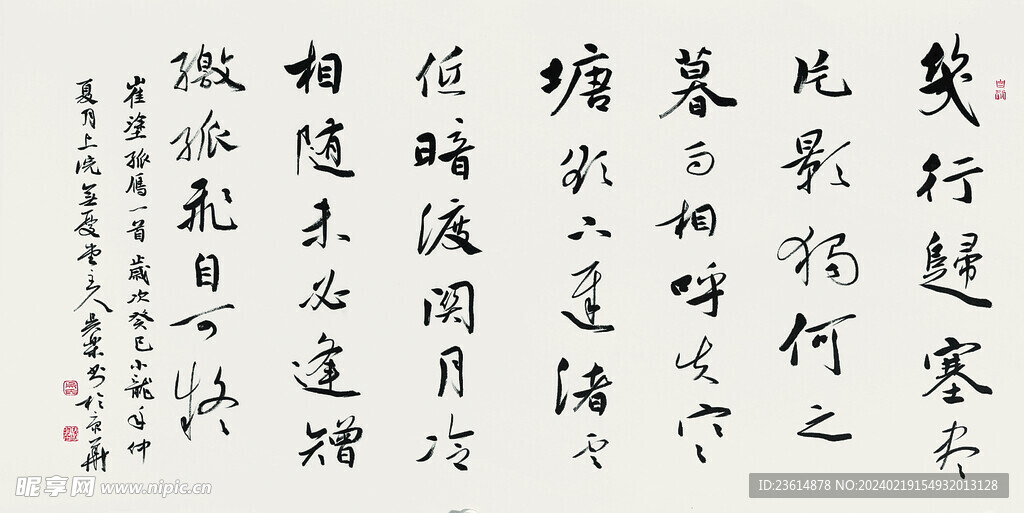 幾行歸塞盡
片影獨何之
暮雨相呼失寒
塘欲下遲渚雲
低暗渡關月冷
相随未必逢矰
繳孤飛自可疑
崔塗孤鴈一首 歲次癸巳小龍年仲
夏月上浣無憂堂主人書於京華
昵享网 www.nipic.cn
ID:23614878 NO:20240219154932013128